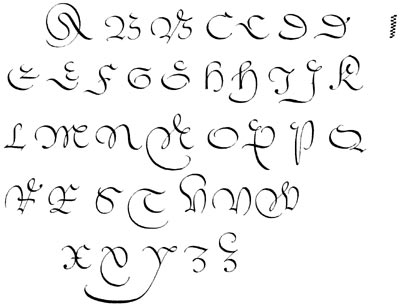 A B B C C D D
E E F G G H H I J K
L M N N O P P Q
R R S T U V W
X X Y Z Z